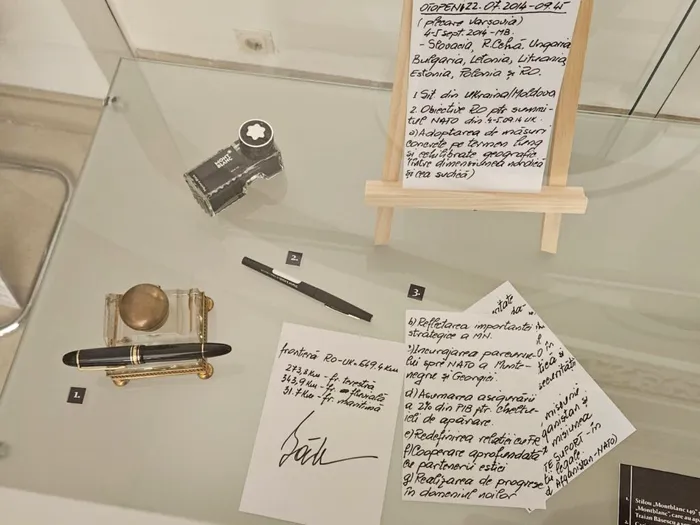 OTOPENI 22.07.2014-09.45
(plecare Varșovia)
4-5 sept. 2014 - MB.
- Slovacia, R. Cehă, Ungaria
Bulgaria, Letonia, Lituania
Estonia, Polonia și RO.
1. Sit din Ukraina/Moldova
2. Obiective RO ptr summi-
tul NATO din 4-5.09.14 UK.
a) Adoptarea de măsuri
concrete pe termen lung
și echilibrate geografic
(între dimensiunea nordică
și cea sudică)
MONT
BLANC
1.
2.
3.
frontieră RO-UK=649.4 Km
273,8 Km - fr. terestră
343,9 Km - fr. fluvială
31.7 Km - fr. maritimă
b) Reflectarea importanței
strategice a MN.
c) Încurajarea parcursu-
lui spre NATO a Munte-
negre și Georgiei.
d) Asumarea asigurării
a 2% din PIB ptr. cheltu-
ieli de apărare.
e) Redefinirea relației cu FR
f) Cooperare aprofundată
cu partenerii estici
g) Realizarea de progrese
în domeniul noilor
securității
misiunii
misiunea
SUPORT - în
legale.
Afganistan-NATO)
Stilou „Montblanc 149
„Montblanc”, care au
Traian Băsescu